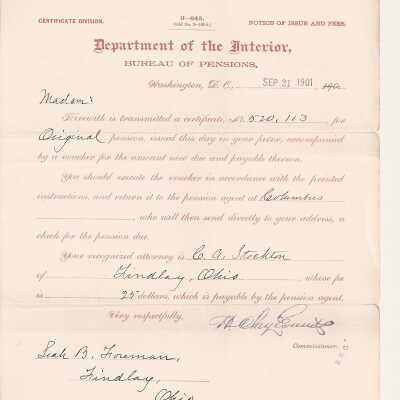 CERTIFICATE DIVISION.
3—645.
NOTICE OF ISSUE AND FEES.
Department of the Interior,
BUREAU OF PENSIONS,
Washington, D. C., SEP 21 1901 190
Madam:
Herewith is transmitted a certificate, No. 520,113 for
Original pension, issued this day in your favor, accompanied
by a voucher for the amount now due and payable thereon.
You should execute the voucher in accordance with the printed
instructions, and return it to the pension agent at Columbus
, who will then send directly to your address, a
check for the pension due.
Your recognized attorney is C. A. Stockton
of Findlay, Ohio, whose fee
is 25 dollars, which is payable by the pension agent.
Very respectfully,
Commissioner.
Leah B. Foreman,
Findlay,
Ohio